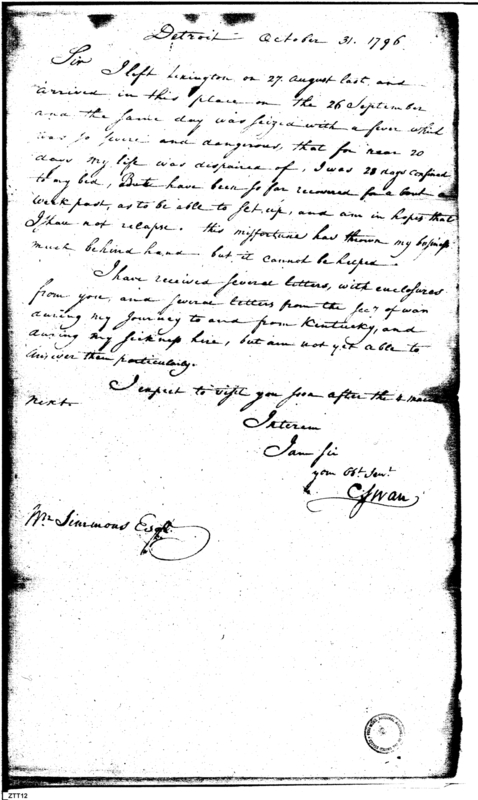 Detroit October 31. 1796
Sir I left Lexington on 27. August last and
arrived in this place on the 26 September
and the same day was seized with a fever which
was so severe and dangerous, that for near 20
days my life was dispaired of, I was 28 days confined
to my bed, But have been so far recovered for a bout a
week past, as to be able to set up, and am in hopes that
I shall not relapse. this misfortune has thrown my business
much behind hand but it cannot be helped.
I have received several letters, with enclosures
from you, and several letters from the Secy of war
during my Journey to and from Kentucky, and
during my sickness here, but am not yet able to
answer them particularly.
I expect to visit you soon after the 4 march
next.
Interem
I am Sir
your Obt Servt
C Swan
Wm Simmons Esqr.
ZTT12